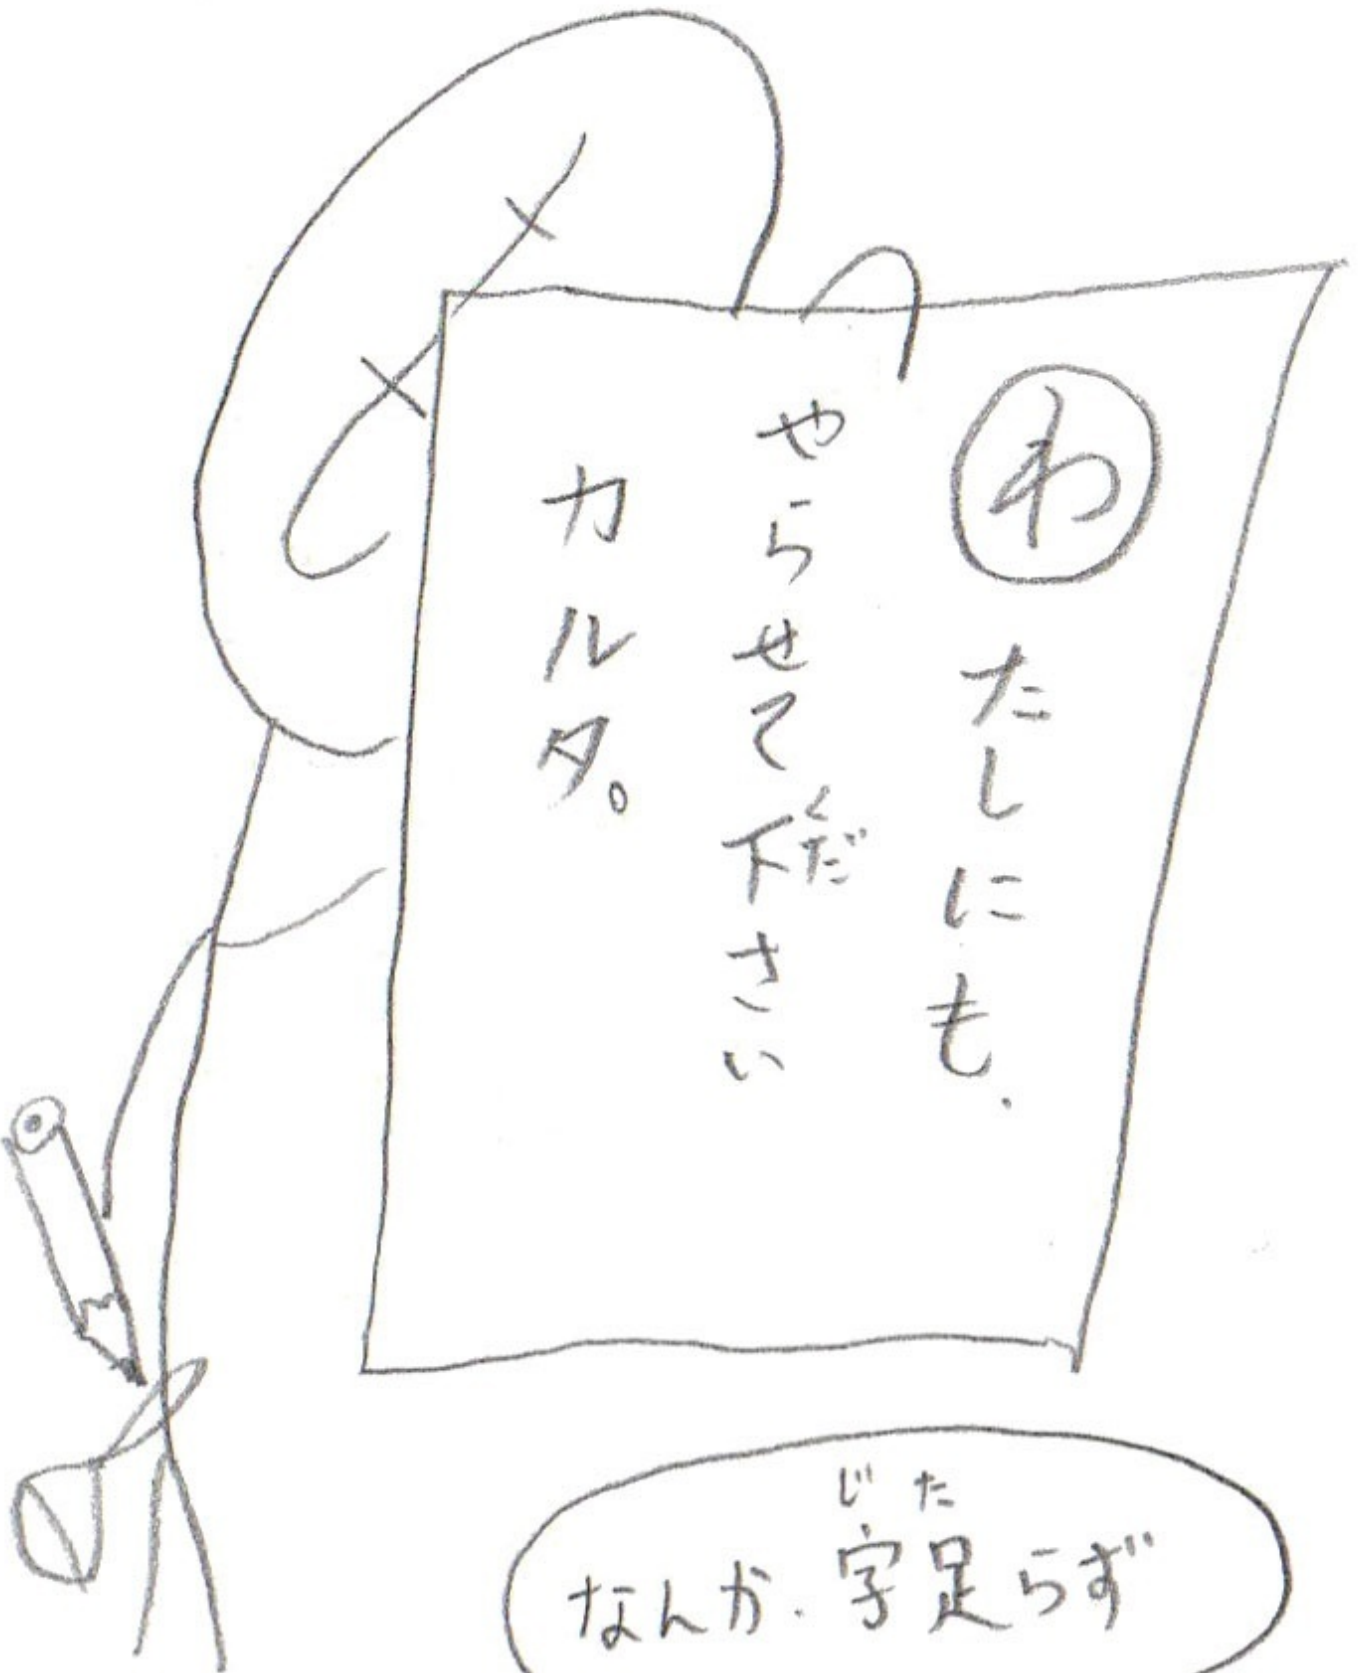 わたしにも、
やらせて下さい
カルタ。
なんか、字足らず